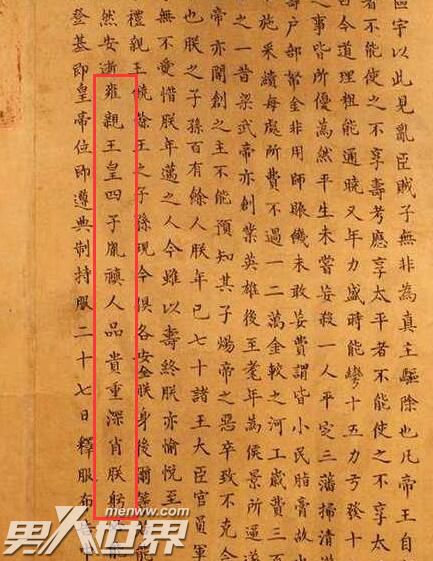 區宇以此見亂臣賊子無非為真主驅除也凡帝王自
者不能使之不享壽考應享太平者不能使之不享
古今道理粗能通曉又年力盛時能彎十五力弓發十
之事皆所優為然平生未嘗妄殺一人平定三藩掃清
寄戶部帑金非用師賑饑未敢妄費謂皆小民脂膏故
施采繢每處所費不過一二萬金較之河工歲費三百
之一昔梁武帝亦創業英雄後至耄年為侯景所逼遂
帝亦開創之主不能預知其子煬帝之惡卒致不克令
也朕之子孫百有餘人朕年已七十諸王大臣官員軍
無不愛惜朕年邁之人今雖以壽終朕亦愉悅至
禮親王饒餘王之子孫現今俱各安全朕身後爾等能
然安逝雍親王皇四子胤禛人品貴重深肖朕躬能
登基即皇帝位即遵典制持服二十七日釋服布中
男人世界
menww.com